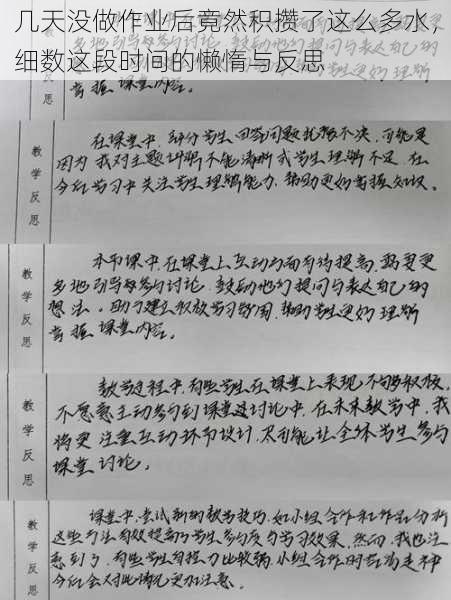 几天没做作业后竟然积攒了这么多水，
细数这段时间的懒惰与反思
多地引导学生参与讨论，鼓励他们提问与表达自己的
掌握课堂内容。
教学反思
在课堂中，部分学生回答问题犹豫不决，可能是
因为我对主题讲解不能清晰或学生理解不足，在
今后学习中关注学生理解能力，帮助更好掌握知识。
教学反思
本节课中，在课堂上互动方面有待提高，需要更
多地引导学生参与讨论，鼓励他们提问与表达自己的
想法。助于建立积极学习氛围，帮助学生更好理解
掌握课堂内容。
教学反思
教学过程中，有些学生在课堂上表现不够积极，
不愿意主动参与到课堂讨论中，在未来教学中，我
将更注重互动环节设计，尽可能让全体学生参与
课堂讨论。
教学反思
课堂中，尝试新的教学技巧，如小组合作和作品分析
这些方法有效提高学生参与度与学习效果，然而，我也注
意到了，有些学生自控力比较弱，小组合作时容易走神
今后会对此情况更加注意。